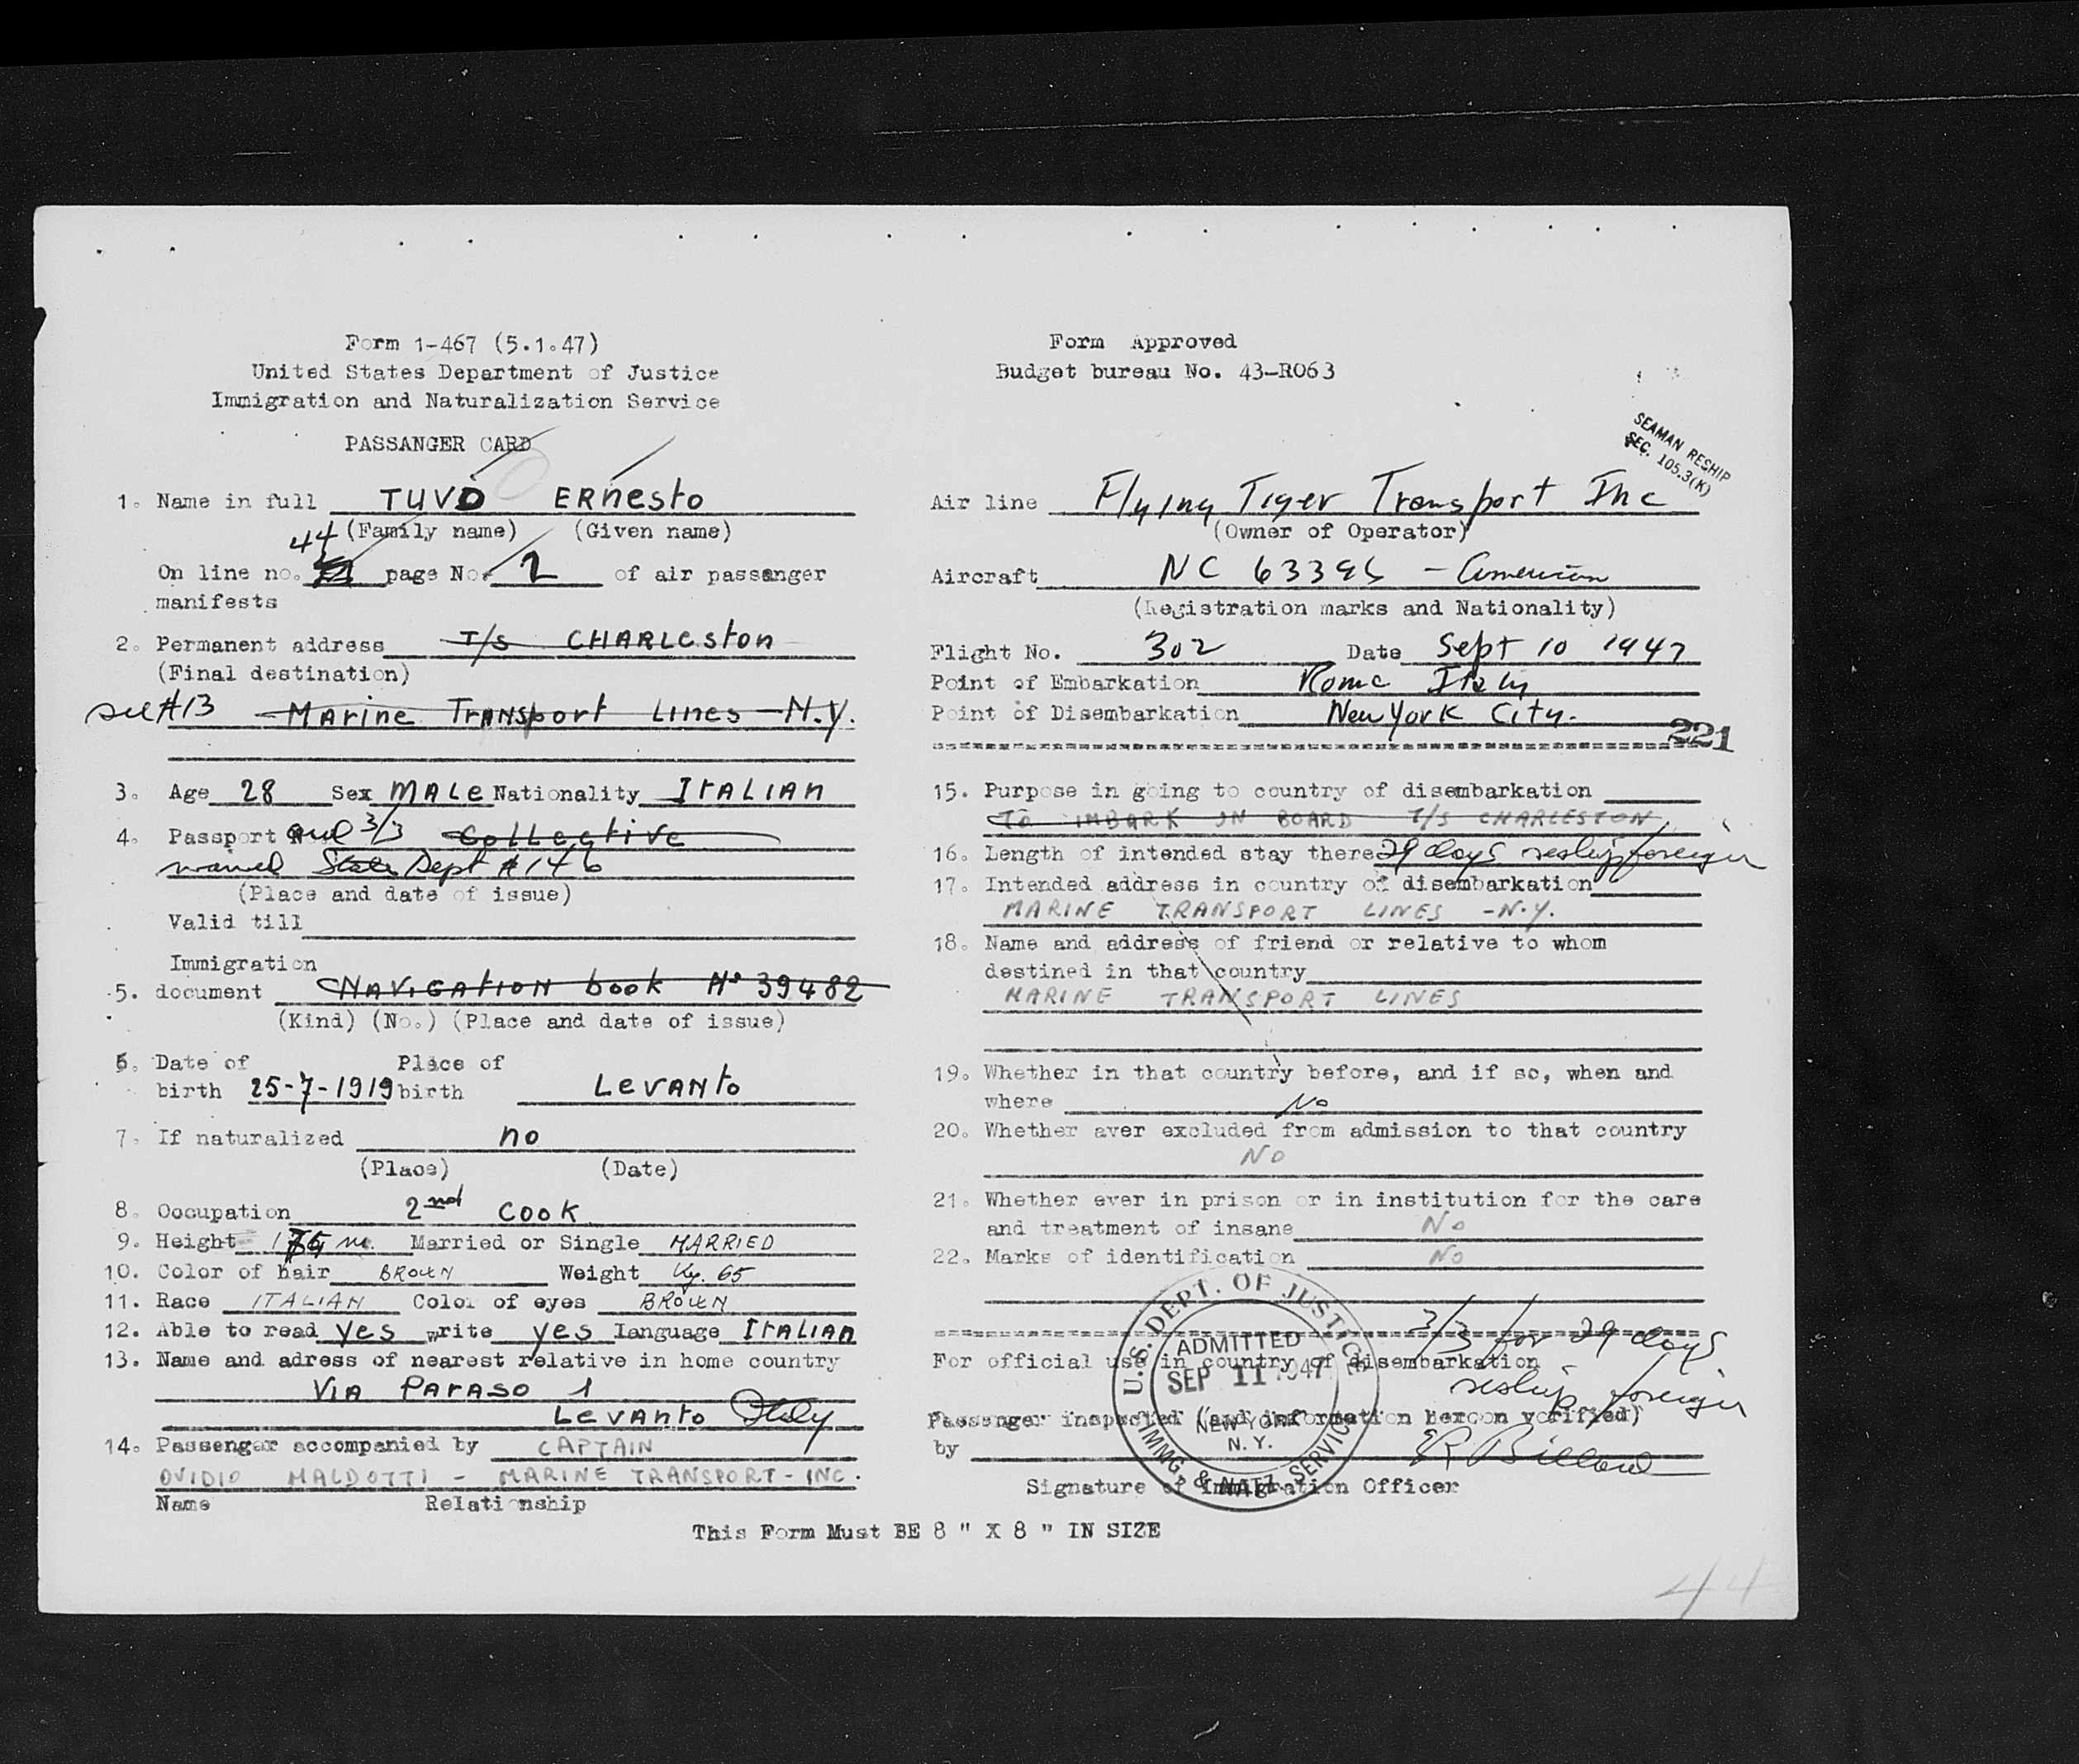 Form 1-467 (5.1.47)
United States Department of Justice
Immigration and Naturalization Service
PASSANGER CARD
1. Name in full TUVO ERnesto
(Family name) (Given name)
44
On line no. page No. 2 of air passanger
manifests
2. Permanent address T/s CHARLeston
(Final destination)
see #13 Marine TRANSport Lines N.Y.
3. Age 28 Sex MALe Nationality ITALIAN
4. Passport 3/3 Collective
State Dept # 146
(Place and date of issue)
Valid till
Immigration
5. document NAVIGATION book N° 39482
(Kind) (No.) (Place and date of issue)
6. Date of Place of
birth 25-7-1919 birth LeVANto
7. If naturalized no
(Place) (Date)
8. Occupation 2nd cook
9. Height m. Married or Single MARRIED
10. Color of hair BROWN Weight Kg. 65
11. Race ITALIAN Color of eyes BROWN
12. Able to read yes write yes language ITALIAN
13. Name and adress of nearest relative in home country
VIA PARASO 1
LeVANto Italy
14. Passenger accompanied by CAPTAIN
OVIDIO MALDOTTI - MARINE TRANSPORT - INC.
Name Relationship
Form Approved
Budget bureau No. 43-R063
SEAMAN RESHIP
SEC. 105.3(K)
Air line Flying Tiger Transport Inc
(Owner of Operator)
Aircraft NC 63396 - American
(Registration marks and Nationality)
Flight No. 302 Date Sept 10 1947
Point of Embarkation Rome Italy
Point of Disembarkation New York City.
221
15. Purpose in going to country of disembarkation
TO IMBARK ON BOARD T/S CHARLESTON
16. Length of intended stay there 29 days reship foreign
17. Intended address in country of disembarkation
MARINE TRANSPORT LINES - N.Y.
18. Name and address of friend or relative to whom
destined in that country
MARINE TRANSPORT LINES
19. Whether in that country before, and if so, when and
where No
20. Whether aver excluded from admission to that country
No
21. Whether ever in prison or in institution for the care
and treatment of insane No
22. Marks of identification No
3/3 for 29 days
reship foreign
For official use in country of disembarkation
U.S. DEPT. OF JUSTICE
ADMITTED
SEP 11 1947
NEW YORK
N.Y.
IMMG. & NATZ. SERVICE
Passenger inspected (and information hereon verified)
by ER Billard
Signature of Immigration Officer
This Form Must BE 8 " X 8 " IN SIZE
44